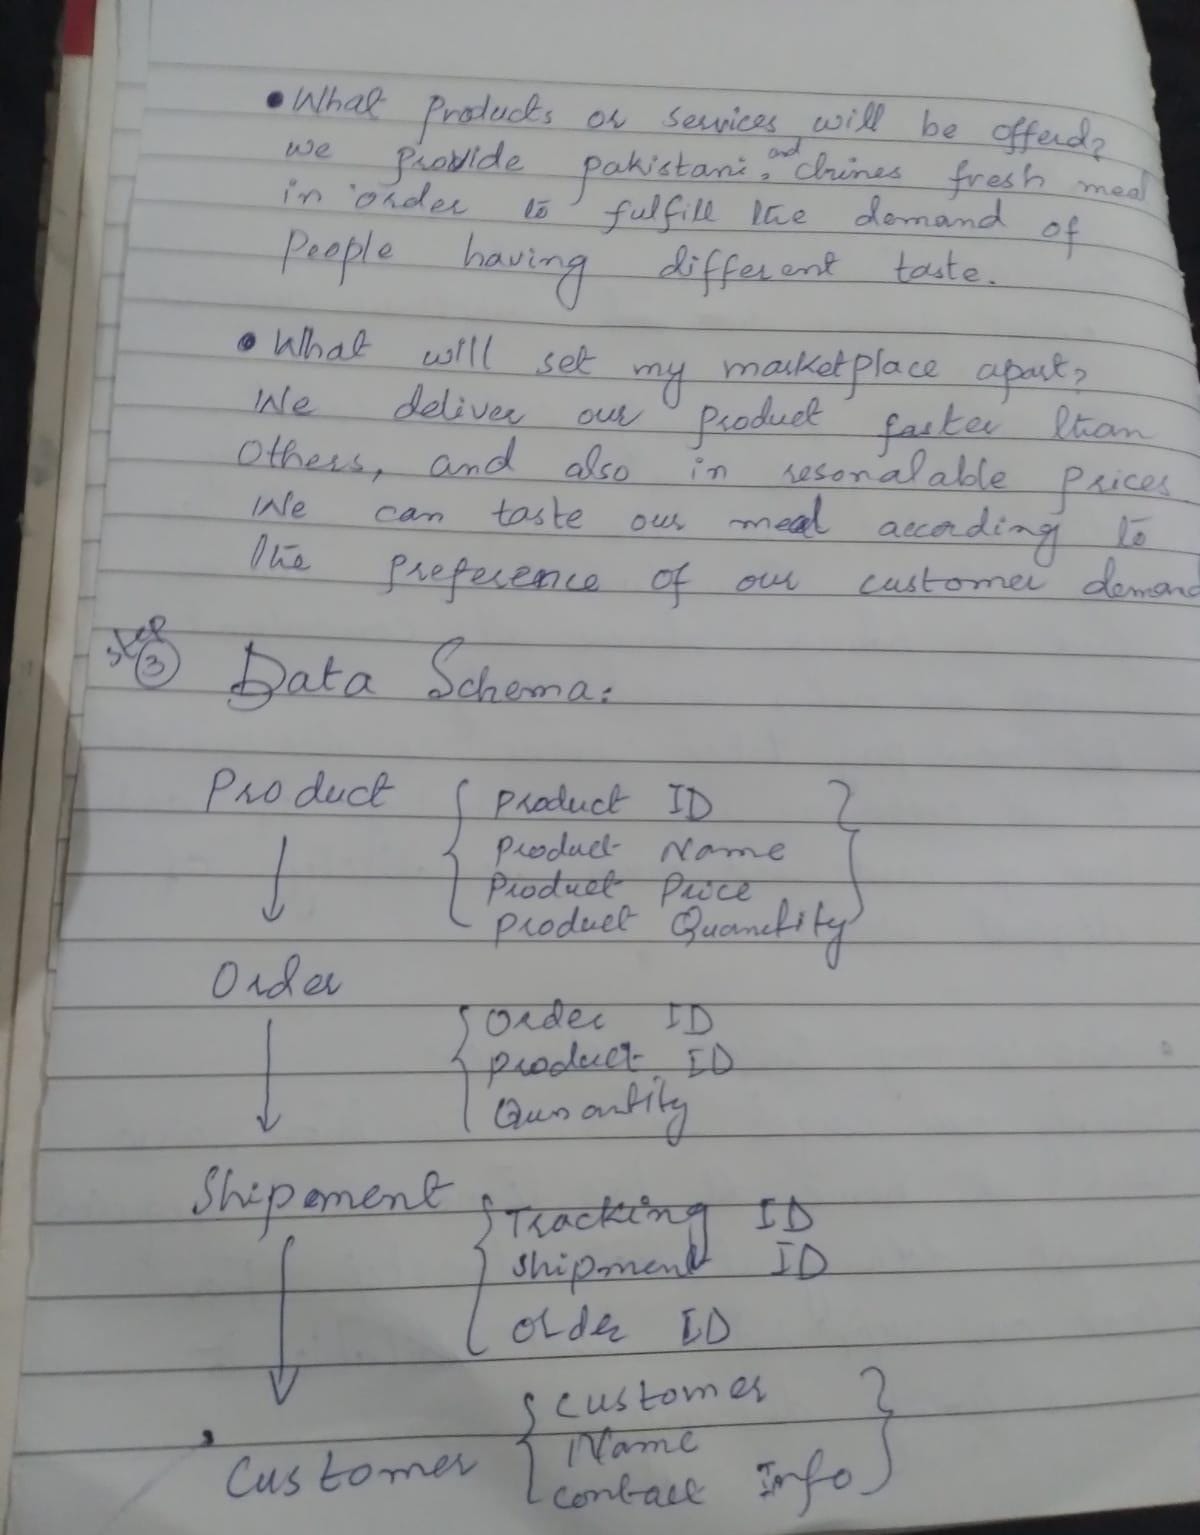 • What Products or services will be offerd?
we provide pakistani, and chines fresh meal
in order to fulfill the demand of
People having different taste.
• What will set my marketplace apart?
We deliver our Product faster than
Others, and also in resonalable prices
We can taste our meal according to
the preference of our customer demand
step 3 Data Schema:
Product { Product ID }
Product Name
Product Price
Product Quantity
Order
{ Order ID
Product ID
Quantity
Shipment { Tracking ID
Shipment ID
Order ID
Customer { Customer }
Name
Contact Info